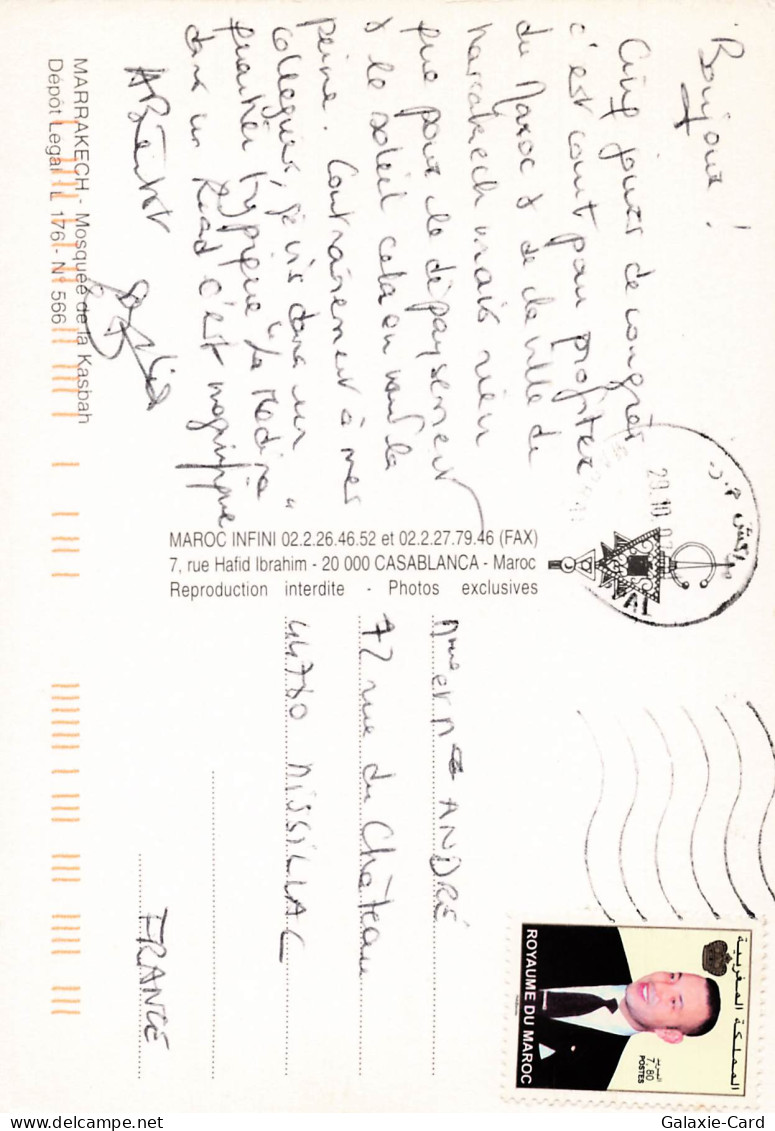 Bonjour !
Cinq jours de congrès
c'est court pour profiter
du Maroc & de la ville de
Marrakech mais rien
que pour le dépaysement
& le soleil cela en vaut la
peine. Contrairement à mes
collègues, je vis dans un
quartier typique "la Médina"
dans un Riad c'est magnifique
A Bientôt
MARRAKECH - Mosquée de la Kasbah
Dépôt Legal : L 176 - N° 566
MAROC INFINI 02.2.26.46.52 et 02.2.27.79.46 (FAX)
7, rue Hafid Ibrahim - 20 000 CASABLANCA - Maroc
Reproduction interdite - Photos exclusives
مراكش م.ر
Mme et Mr ANDRÉ
72 rue du Château
44780 MISSILLAC
FRANCE
المملكة المغربية
7,80
POSTES
ROYAUME DU MAROC
Galaxie-Card
www.galaxie-card.com